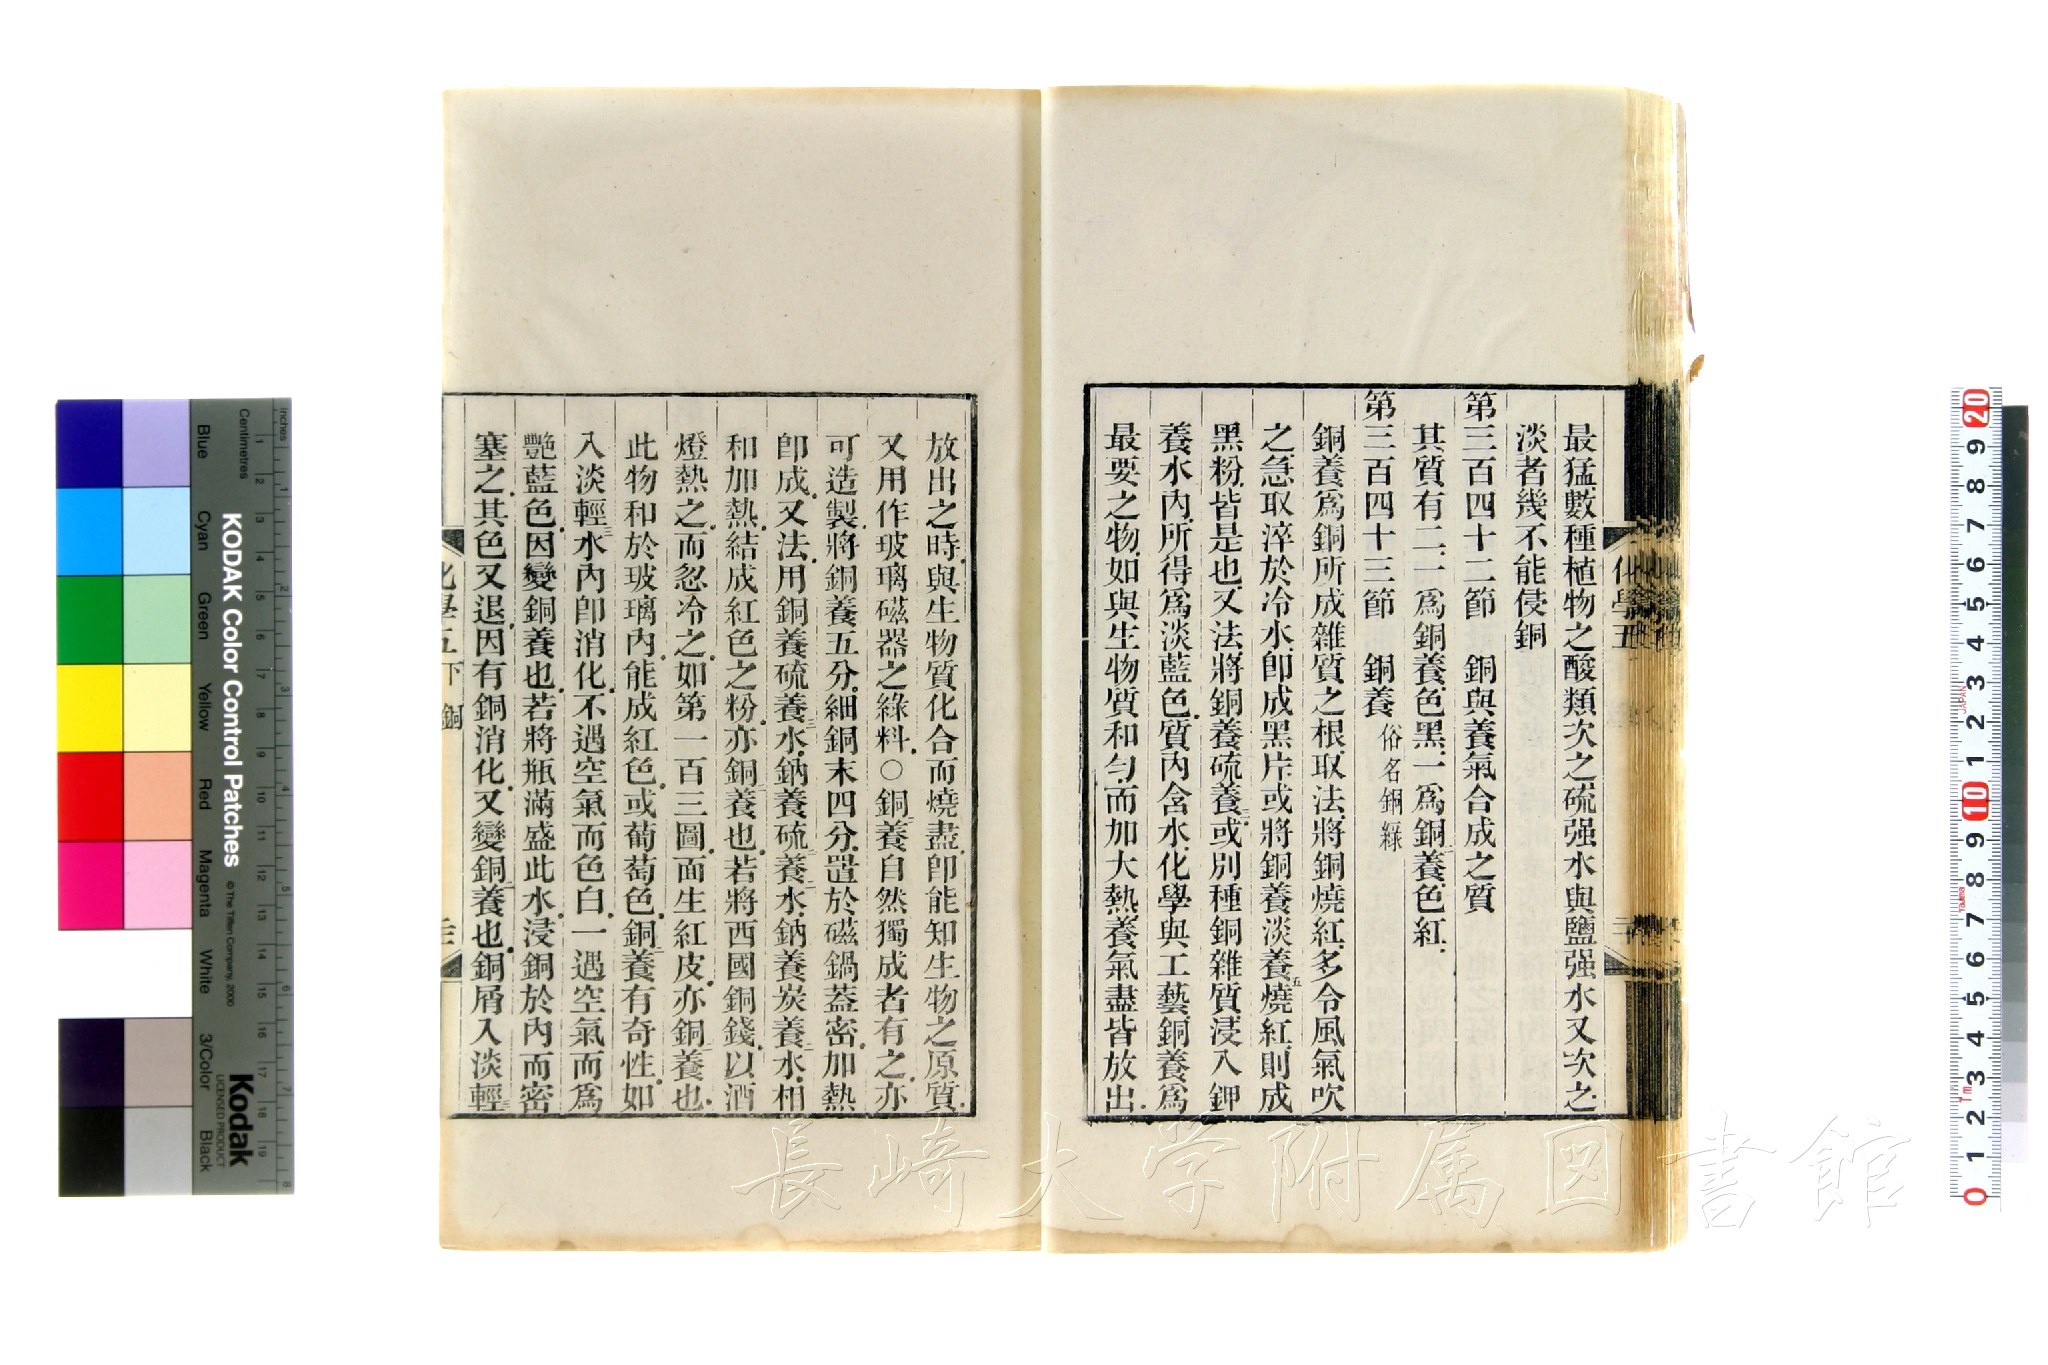 最猛數種植物之酸類次之硫强水與鹽强水又次之
淡者幾不能侵銅
第三百四十二節　銅與養氣合成之質
其質有二一爲銅養色黑一爲銅二養色紅
第三百四十三節　銅養俗名銅綠
銅養爲銅所成雜質之根取法將銅燒紅多令風氣吹
之急取淬於冷水卽成黑片或將銅養淡養五燒紅則成
黑粉皆是也又法將銅養硫養三或別種銅雜質浸入鉀
養水內所得爲淡藍色質內含水化學與工藝銅養爲
最要之物如與生物質和勻而加大熱養氣盡皆放出
放出之時與生物質化合而燒盡卽能知生物之原質
又用作玻璃磁器之綠料○銅二養自然獨成者有之亦
可造製將銅養五分細銅末四分置於磁鍋蓋密加熱
卽成又法用銅養硫養三水鈉養硫養二水鈉養炭養二水相
和加熱結成紅色之粉亦銅二養也若將西國銅錢以酒
燈熱之而忽冷之如第一百三圖面生紅皮亦銅二養也
此物和於玻璃內能成紅色或葡萄色銅二養有奇性如
入淡輕三水內卽消化不遇空氣而色白一遇空氣而爲
艷藍色因變銅養也若將瓶滿盛此水浸銅於內而密
塞之其色又退因有銅消化又變銅二養也銅屑入淡輕三
化學五
化學五下 銅
KODAK Color Control Patches
© The Tiffen Company, 2000
Kodak
LICENSED PRODUCT
Centimetres
Inches
Blue
Cyan
Green
Yellow
Red
Magenta
White
3/Color
Black
長崎大学附属図書館
JAPAN
Tajima